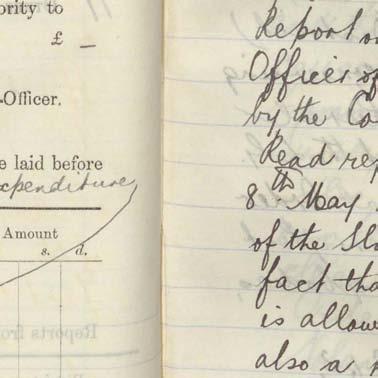 ority to
£ –
-Officer.
e laid before
xpenditure
Amount
s. d.
Report
Officer of
by the Co
Read rep
8th May
of the Sla
fact tha
is allow
also a